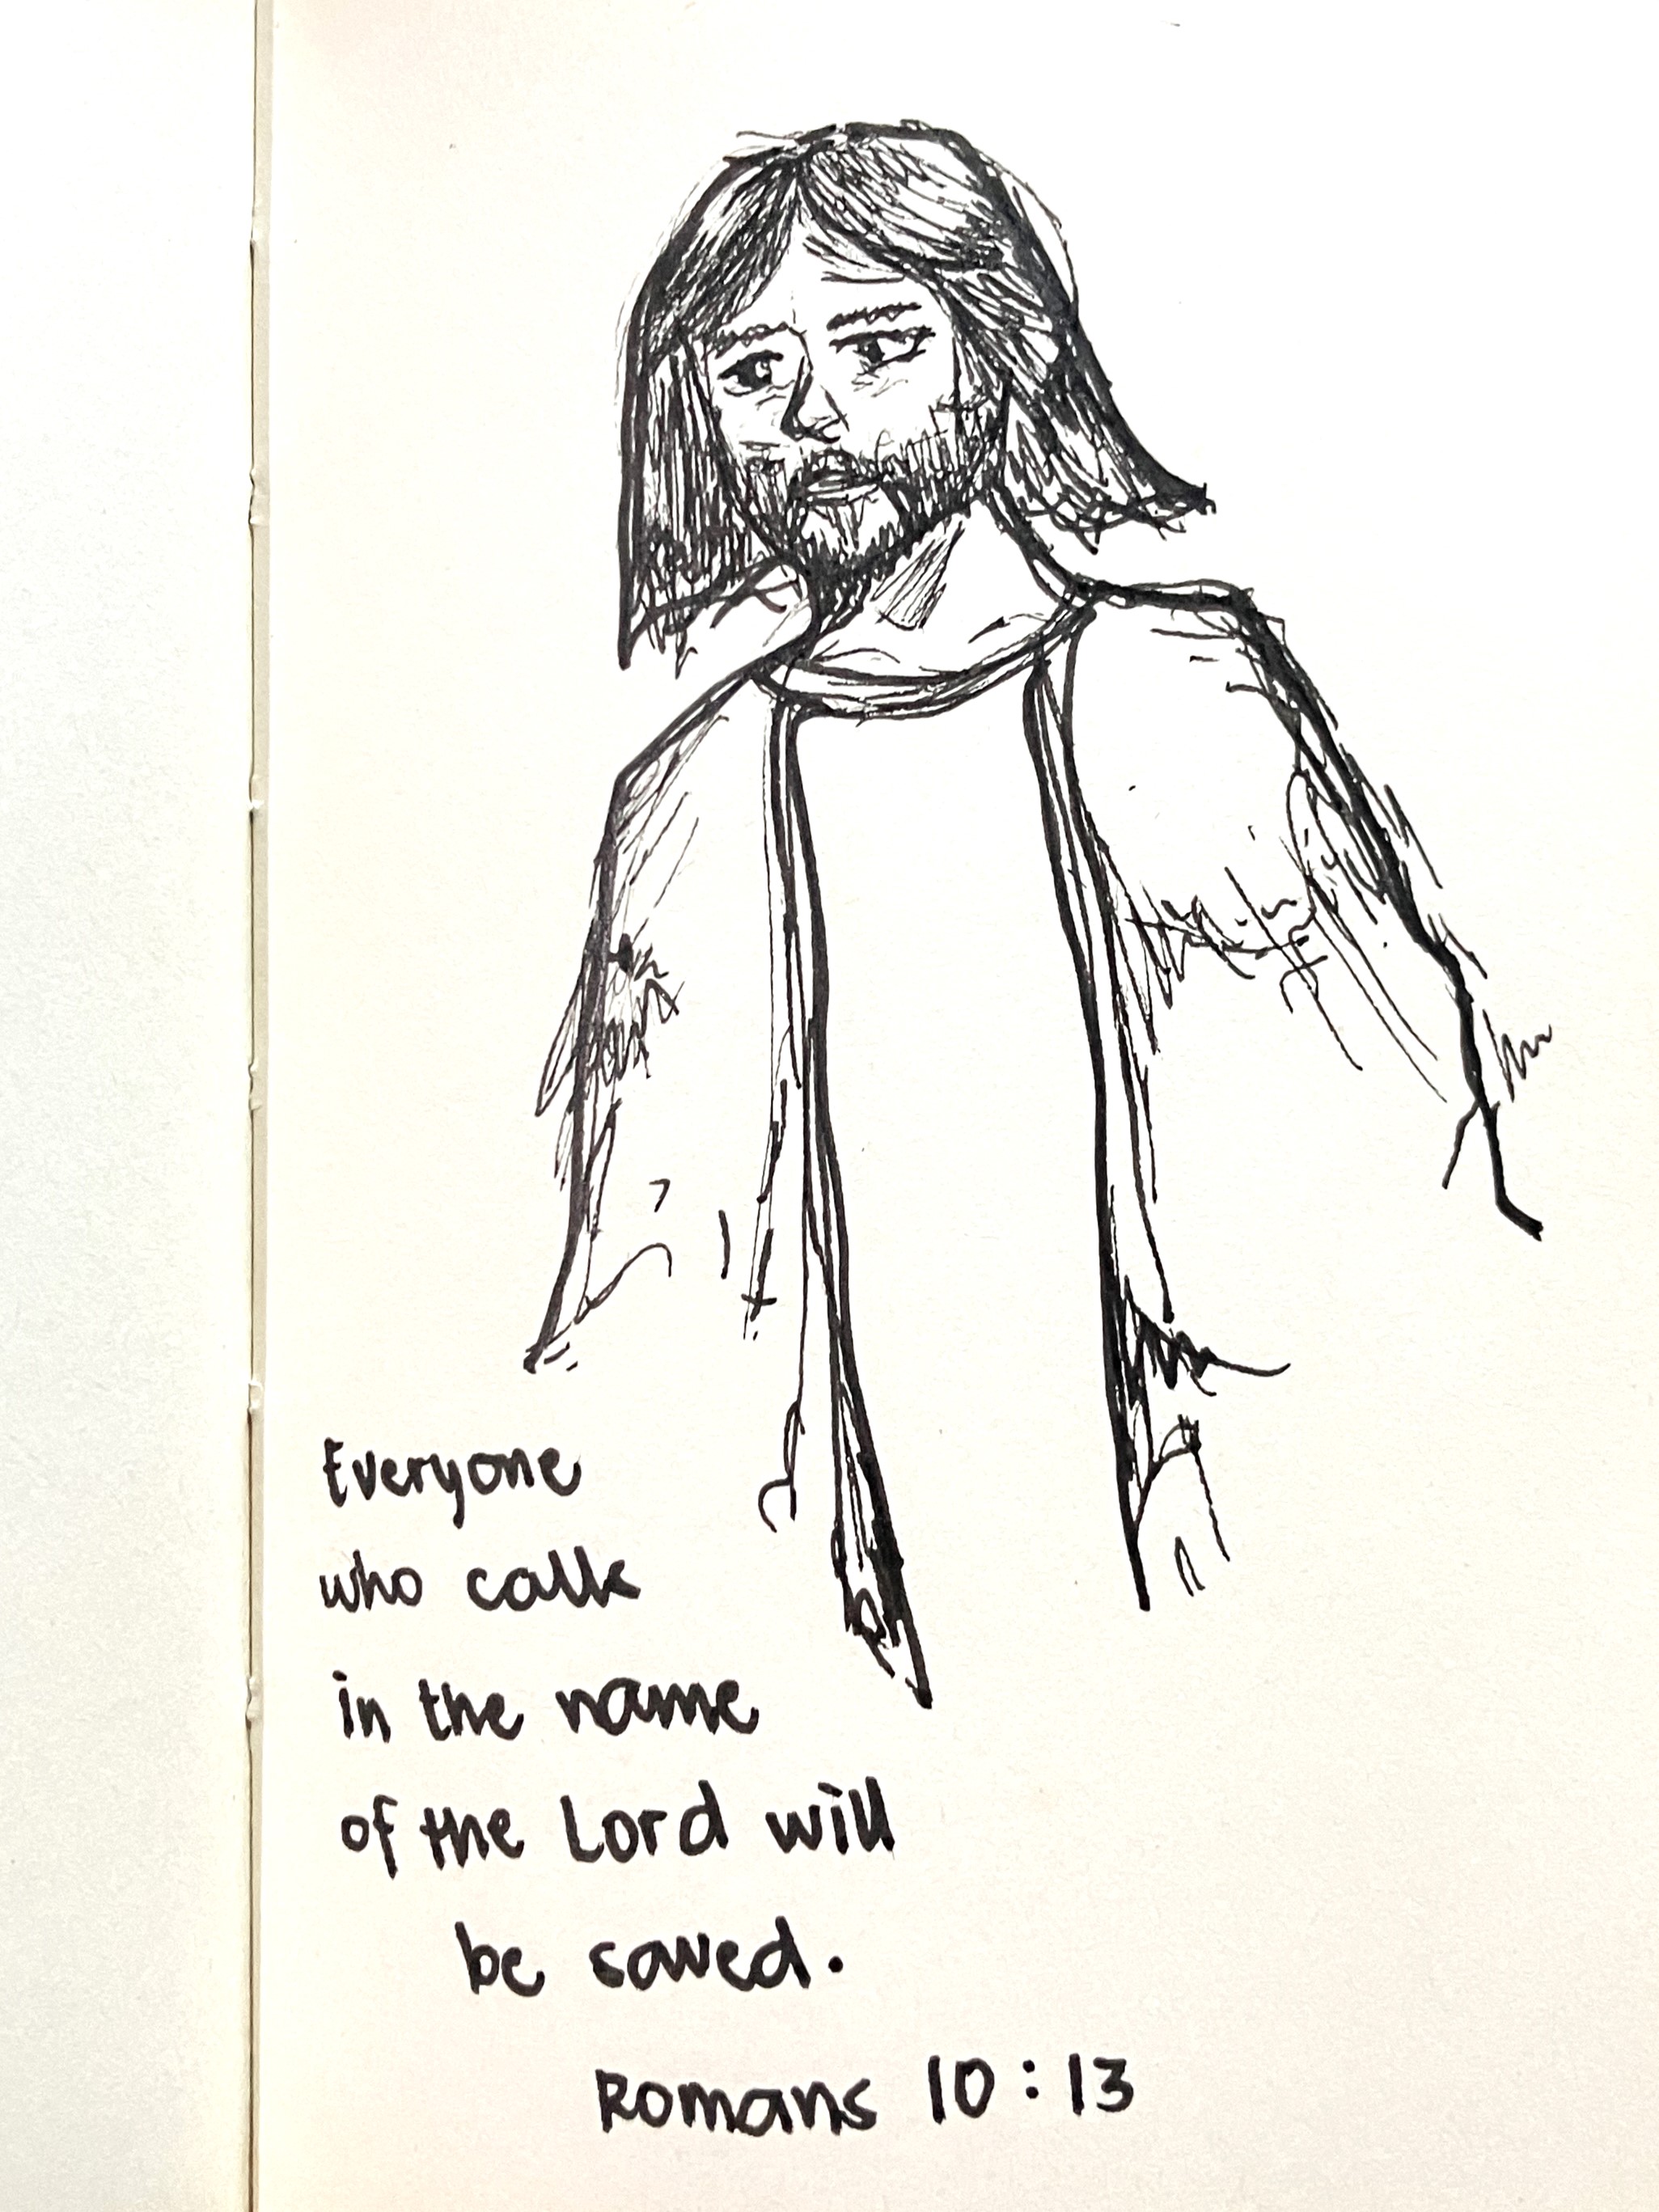 Everyone
who calls
in the name
of the Lord will
be saved.
Romans 10:13